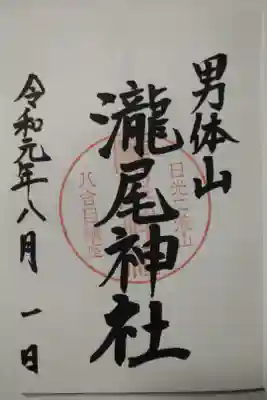 男体山
瀧尾神社
令和元年八月一日
日光二荒山
八合目